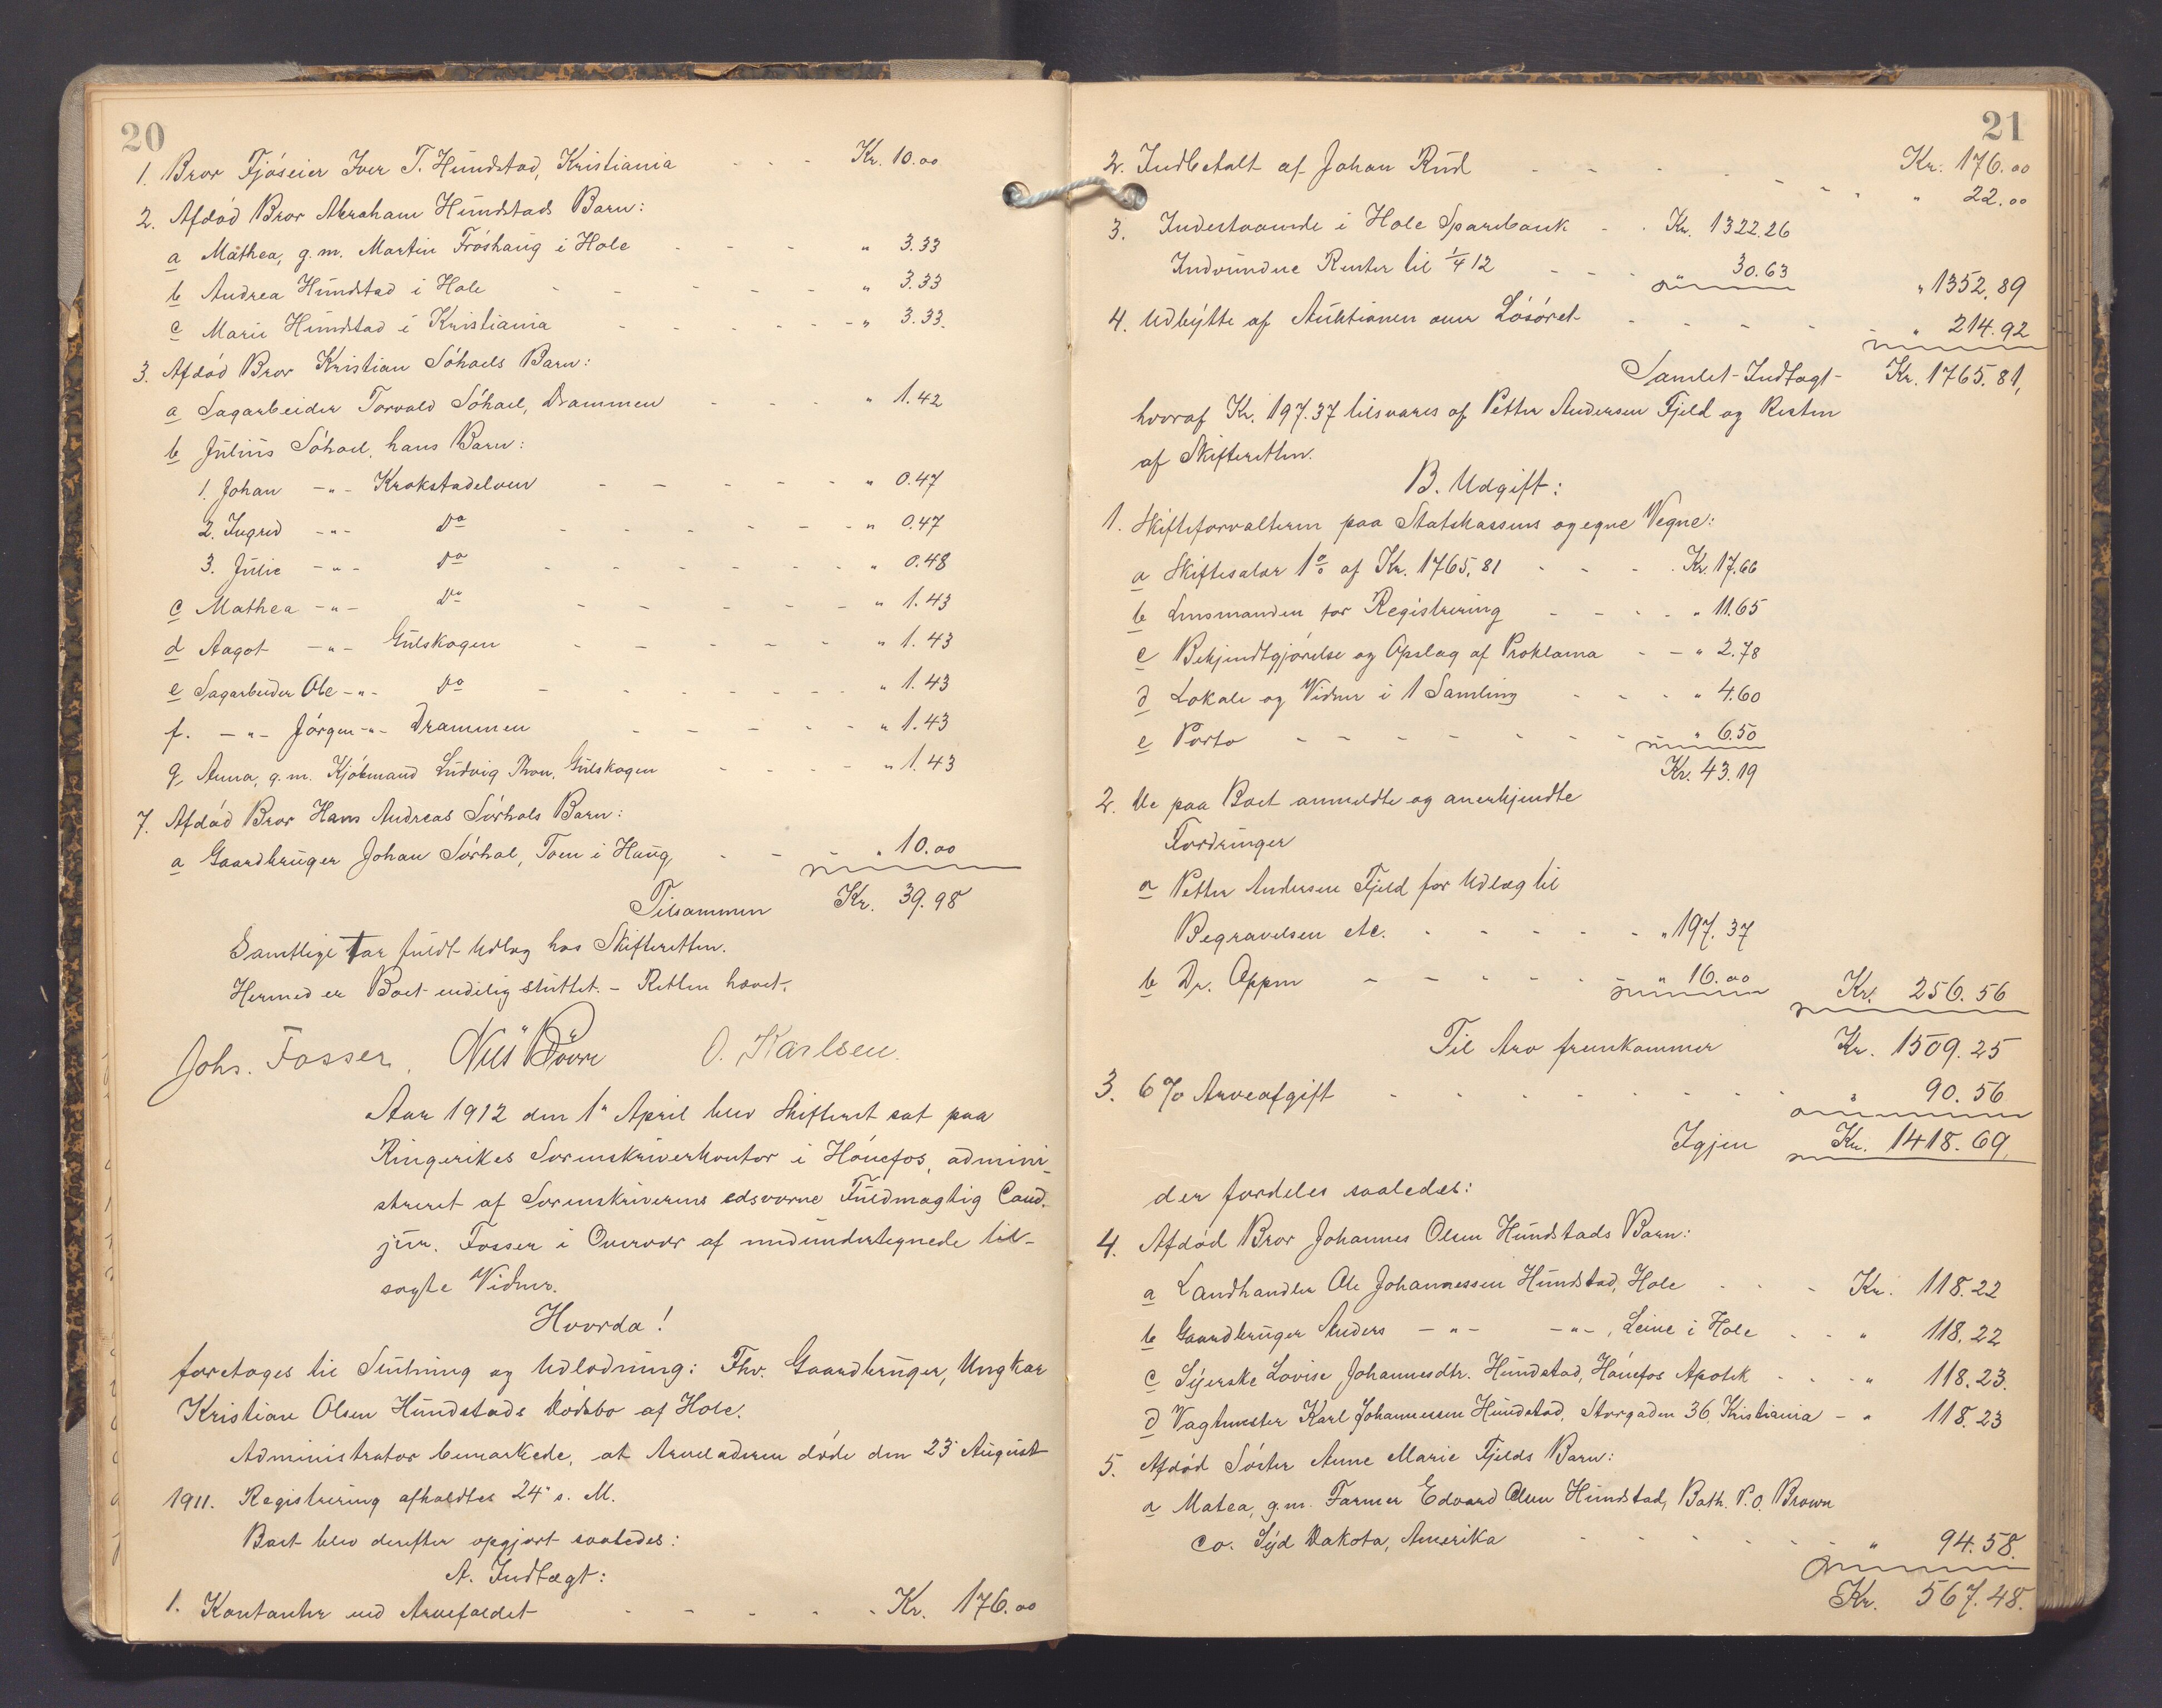 20
1. Bror Fjøseier Iver T. Hundstad, Kristiania - - - Kr. 10.00
2. Afdød Bror Abraham Hundstads Barn:
a Mathea, g.m. Martin Frøshaug i Hole - - - " 3.33
b Andrea Hundstad i Hole - - - - - " 3.33
c Marie Hundstad i Kristiania - - - - - " 3.33.
3. Afdød Bror Kristian Søhols Barn:
a Sagarbeider Torvald Søhol, Drammen - - - " 1.42
b Julius Søhol, hans Barn:
1. Johan -"- Krokstadelven - - - - - " 0.47
2. Ingrid -"- Do - - - - - - " 0.47
3. Julie -"- Do - - - - - - " 0.48
c Mathea -"- Do - - - - - " 1.43
d Aagot -"- Gulskogen - - - - - " 1.43
e Sagarbeider Ole -"- Do - - - - - - " 1.43
f. -"- Jørgen -"- Drammen - - - - - " 1.43
g, Anna, g.m. Kjøbmand Ludvig Thon, Gulskogen - - - - " 1.43
7. Afdød Bror Hans Andreas Sørhols Barn:
a Gaardbruger Johan Sørhol, Toen i Haug - - - " 10.00
Tilsammen Kr. 39.98
Samtlige tar fuldt Udlæg hos Skifteretten.
Hermed er Boet endelig sluttet. - Retten hævet.
Johs. Fosser. Nils Bøvre O. Karlsen.
Aar 1912 den 1" April blev Skifteret sat paa
Ringerikes Sorenskriverkontor i Hønefos, admini-
streret af Sorenskriverens edsvorne Fuldmægtig Cand.
jur. Fosser i Overvær af medundertegnede til-
sagte Vidner.
Hvorda!
foretages til Slutning og Udlodning: Fhv. Gaardbruger, Ungkar
Kristian Olsen Hundstads Dødsbo af Hole.
Administrator bemærkede, at Arveladeren døde den 23" August
1911. Registrering afholdtes 24" s. M.
Boet blev derefter opgjort saaledes:
A. Indtægt:
1. Kontanter ved Arvefaldet - - - - - Kr. 176.00
21
Kr. 176.00
2. Indbetalt af Johan Rud - - - - - - - " 22.00
3. Indestaaende i Hole Sparebank - - Kr. 1322.26
Indvundne Renter til 1/4 12 - - - " 30.63
" 1352.89
4. Udbytte af Auktionen over Løsøret - - - - - " 214.92
Samlet Indtægt - Kr. 1765.81,
hvoraf Kr. 197.37 tilsvares af Petter Andersen Fjeld og Resten
af Skifteretten.
B. Udgift:
1. Skifteforvalteren paa Statskassens og egne Vegne:
a Skiftesalær 1% af Kr. 1765,81 - - - - Kr. 17.66
b Lensmanden for Registrering - - - - " 11.65
c Bekjendtgjørelse og Opslag af Proklama - - " 2.78
d Lokale og Vidner i 1 Samling - - - " 4.60
e Porto - - - - - - - " 6.50
Kr. 43.19
2. De paa Boet anmeldte og anerkjendte
Fordringer
a Petter Andersen Fjeld for Udlæg til
Begravelsen etc. - - - - - " 197.37
b Dr. Oppen - - - - - " 16.00 Kr. 256.56
Til Arv fremkommer Kr. 1509.25
3. 6% Arveafgift - - - - - - - - " 90.56
Igjen Kr. 1418.69,
der fordeles saaledes:
4. Afdød Bror Johannes Olsen Hundstads Barn:
a Landhandler Ole Johannessen Hundstad, Hole - - - Kr. 118.22
b Gaardbruger Anders -"- -"-, Leine i Hole - - " 118.22
c Syerske Lovise Johannesdtr. Hundstad, Hønefos Apotek - - - " 118.23.
d Vagtmester Karl Johannessen Hundstad, Storgaden 36, Kristiania - " 118.23
5. Afdød Søster Anne Marie Fjelds Barn:
a Matea, g.m. Farmer Edvard Olsen Hundstad, Bath. P.O. Brown
Co. Syd Dakota, Amerika - - - - - " 94.58.
Kr. 567.48.